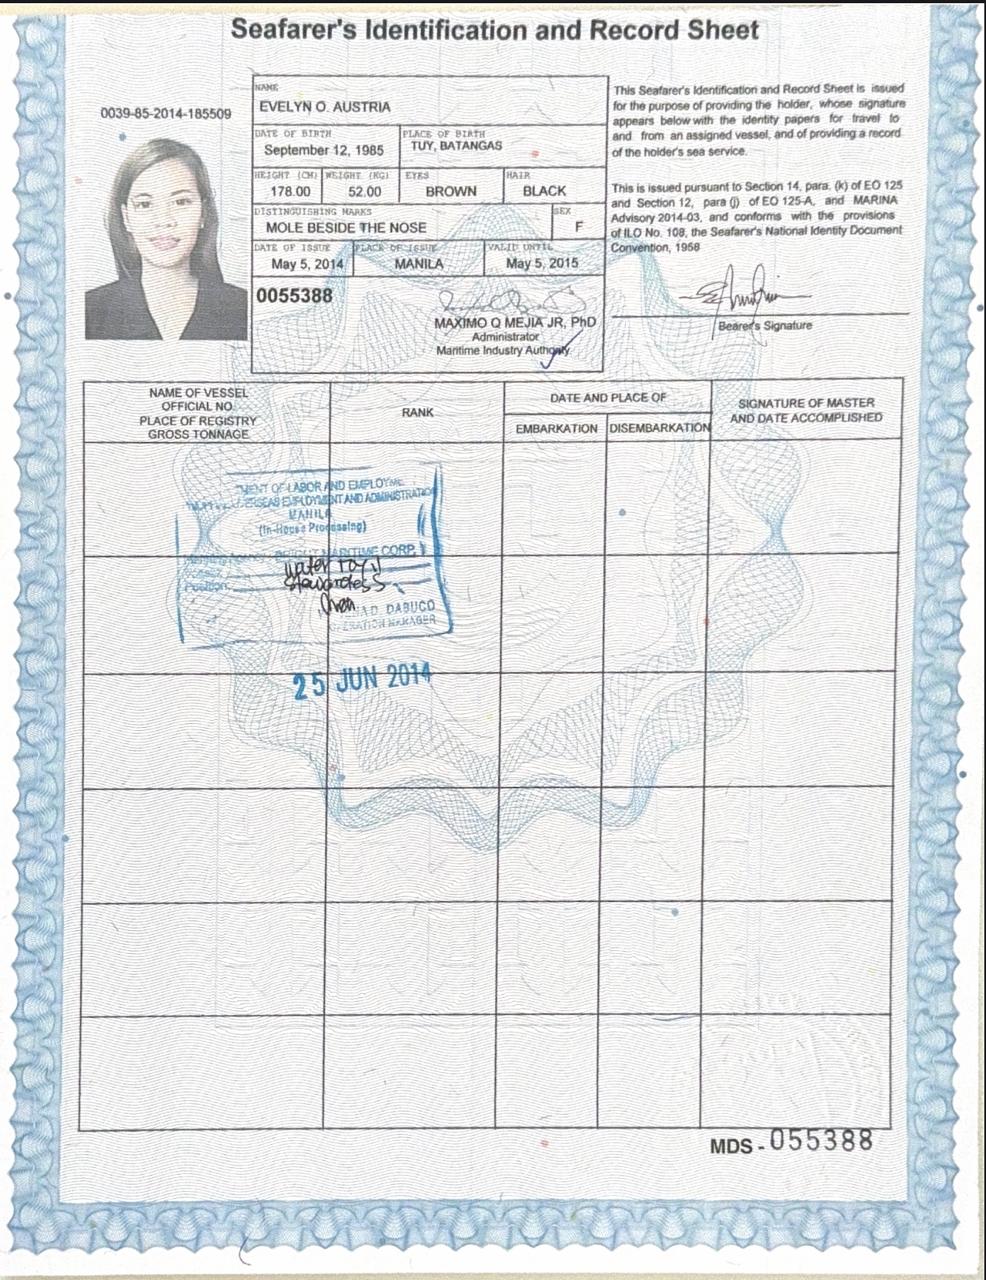 Seafarer's Identification and Record Sheet
0039-85-2014-185509
NAME
EVELYN O. AUSTRIA
DATE OF BIRTH
September 12, 1985
PLACE OF BIRTH
TUY, BATANGAS
HEIGHT (CM)
178.00
WEIGHT (KG)
52.00
EYES
BROWN
HAIR
BLACK
DISTINGUISHING MARKS
MOLE BESIDE THE NOSE
SEX
F
DATE OF ISSUE
May 5, 2014
PLACE OF ISSUE
MANILA
VALID UNTIL
May 5, 2015
0055388
MAXIMO Q MEJIA JR, PhD
Administrator
Maritime Industry Authority
This Seafarer's Identification and Record Sheet is issued
for the purpose of providing the holder, whose signature
appears below with the identity papers for travel to
and from an assigned vessel, and of providing a record
of the holder's sea service.
This is issued pursuant to Section 14, para. (k) of EO 125
and Section 12, para (j) of EO 125-A, and MARINA
Advisory 2014-03, and conforms with the provisions
of ILO No. 108, the Seafarer's National Identity Document
Convention, 1958
Bearer's Signature
NAME OF VESSEL
OFFICIAL NO.
PLACE OF REGISTRY
GROSS TONNAGE
RANK
DATE AND PLACE OF
EMBARKATION
DISEMBARKATION
SIGNATURE OF MASTER
AND DATE ACCOMPLISHED
OF LABOR AND
EMPLOYMENT AND ADMINISTRATION
MANILA
(In-House Processing)
MARITIME CORP.
Position
DABUCO
MANAGER
25 JUN 2014
MDS - 055388